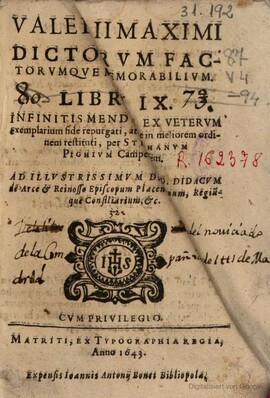 31. 192
VALERII MAXIMI
DICTORVM FAC-
TORVMQVE MEMORABILIVM.
87
V4
-94
80 LIBRI IX. 73.
INFINITIS MENDIS EX VETERVM
exemplarium fide repurgati, atque in meliorem ordi-
nem restituti, per STEPHANVM
PIGHIVM Campensem.
R. 162378
AD ILLVSTRISSIMVM D. D. DIDACVM
de Arce & Reinoso Episcopum Placentinum, Regium
que Consiliarium, &c.
32
del noviciado
de la Com pañia de Jhs de Ma
drid
IHS
CVM PRIVILEGIO.
MATRITI, EX TYPOGRAPHIA REGIA,
Anno 1643.
Expensis Ioannis Antonij Bonet Bibliopolæ,
Digitalisiert von Google